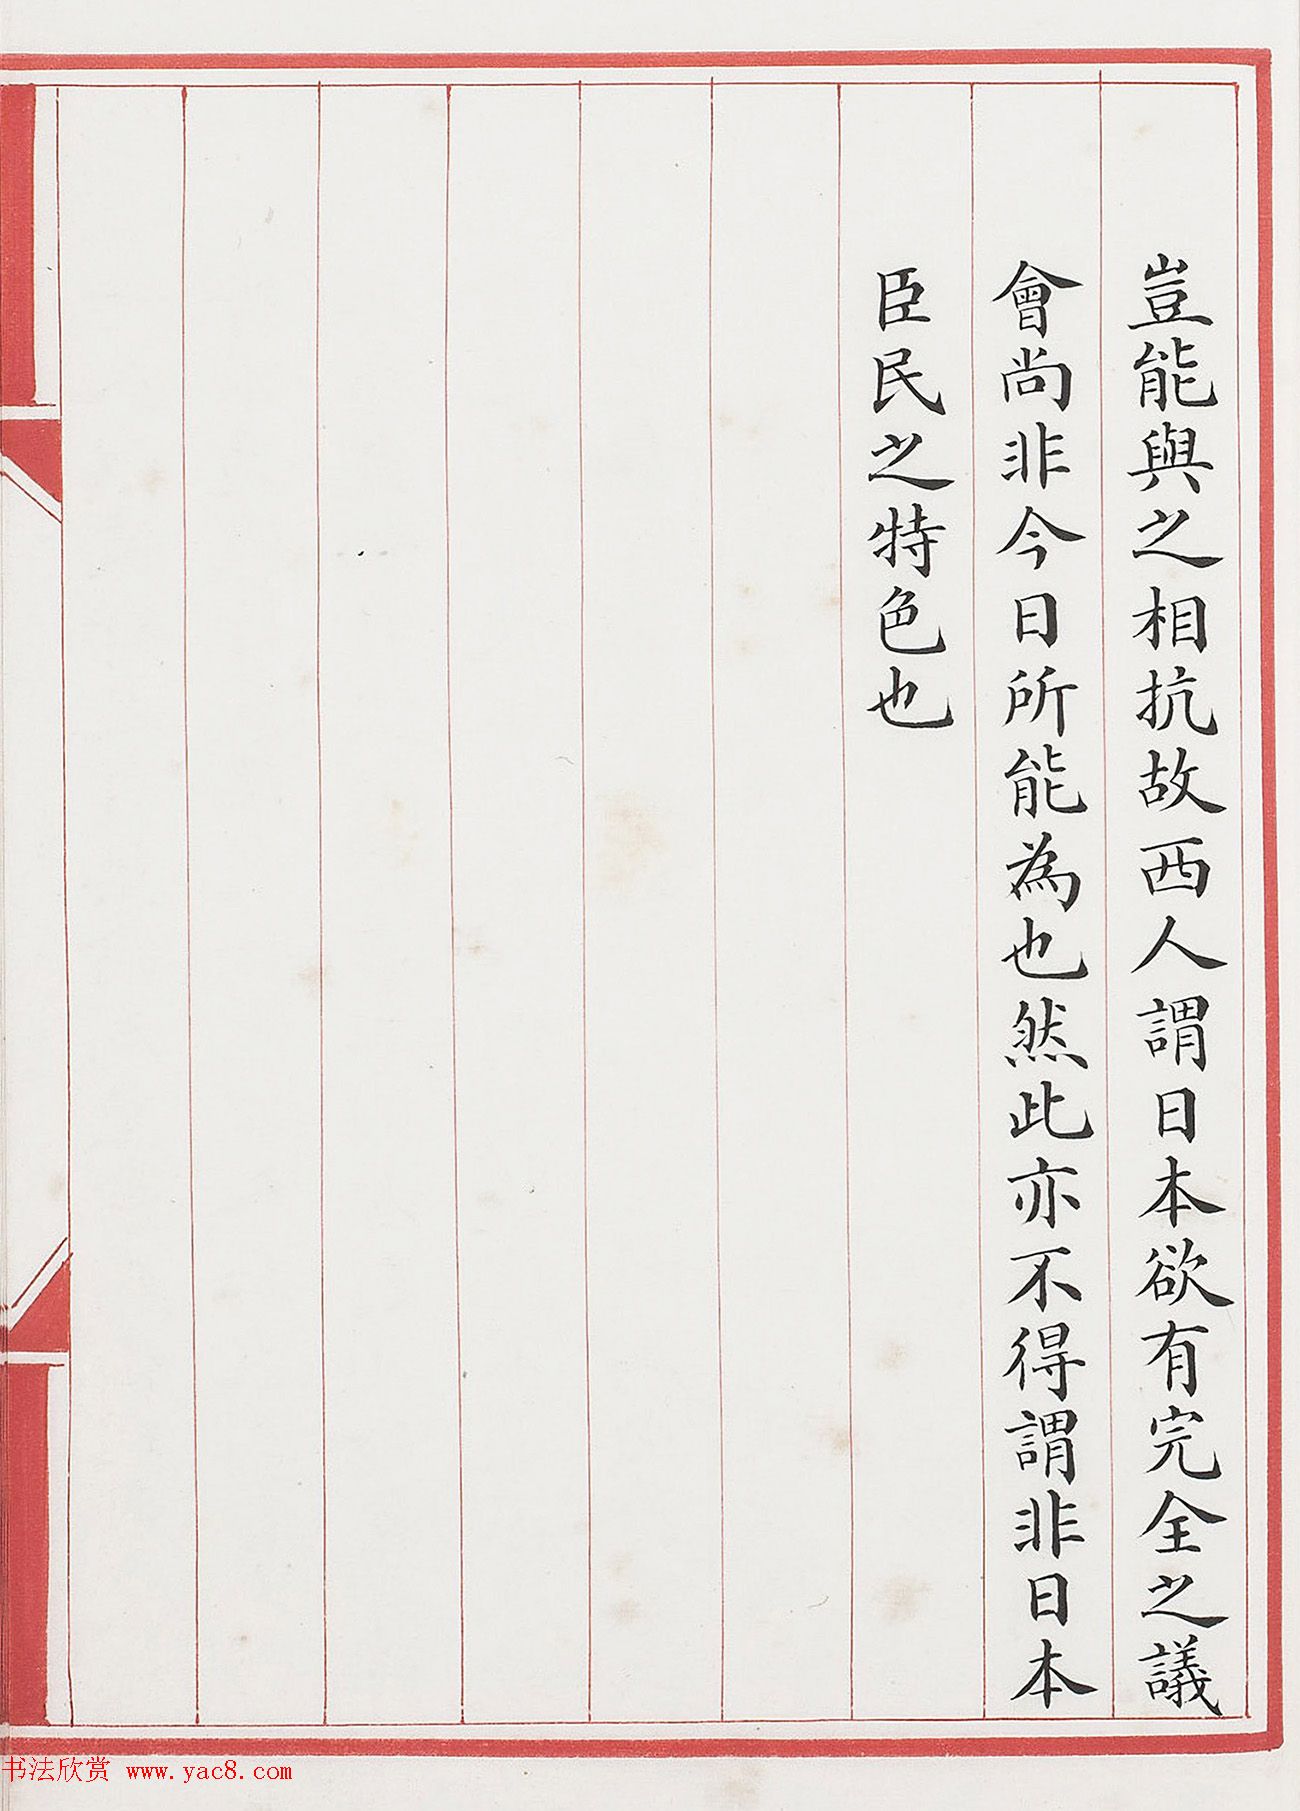 豈能與之相抗故西人謂日本欲有完全之議
會尚非今日所能為也然此亦不得謂非日本
臣民之特色也
书法欣赏 www.yac8.com